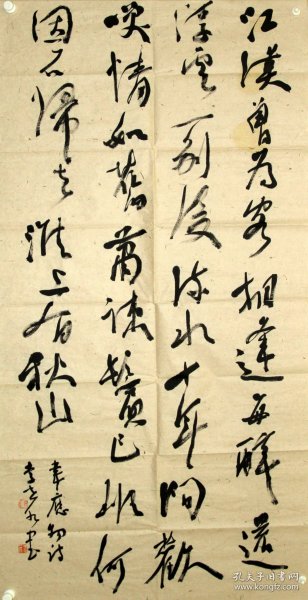 江漢曾为客相逢每醉還
浮雲一别後流水十年间歡
笑情如舊蕭疎鬢已斑何
因不歸去淮上有秋山
韋應物詩
孔夫子旧书网